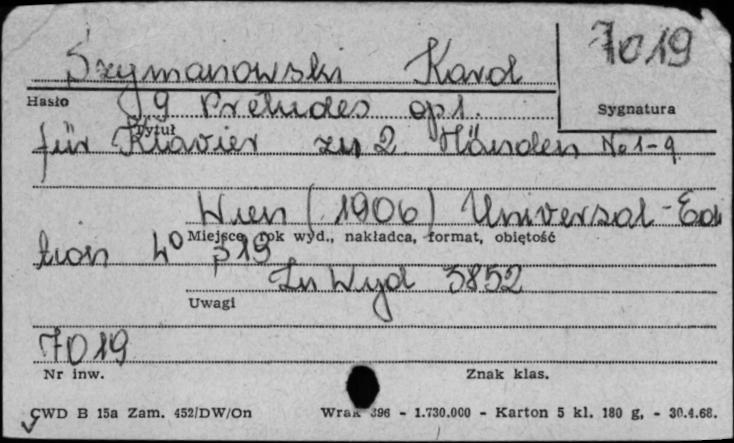 7019
Szymanowski Karol
Hasło
Sygnatura
9 Préludes op 1.
Tytuł
für Klavier zu 2 Händen No 1-9
Wien (1906) Universal-Edi
Miejsce, rok wyd., nakładca, format, obiętość
tion 4° S 19
Ln Wyd 3852
Uwagi
7019
Nr inw.
Znak klas.
CWD B 15a Zam. 452/DW/On Wrak 396 - 1.730.000 - Karton 5 kl. 180 g, - 30.4.68.